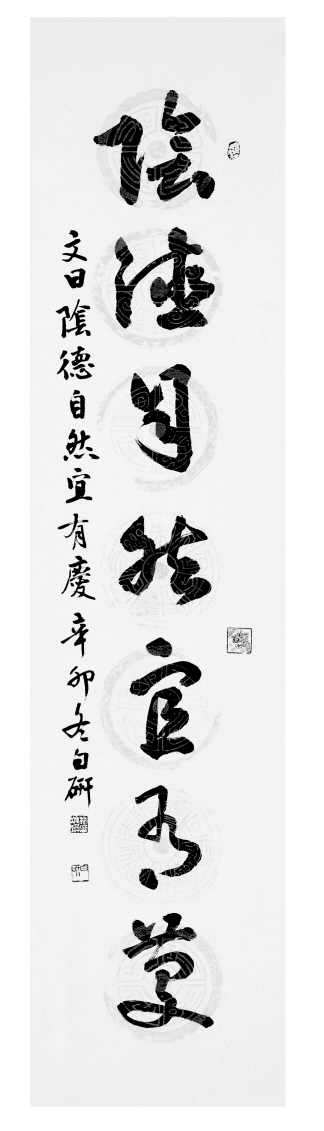 陰德自然宜有慶
文曰陰德自然宜有慶 辛卯冬白研